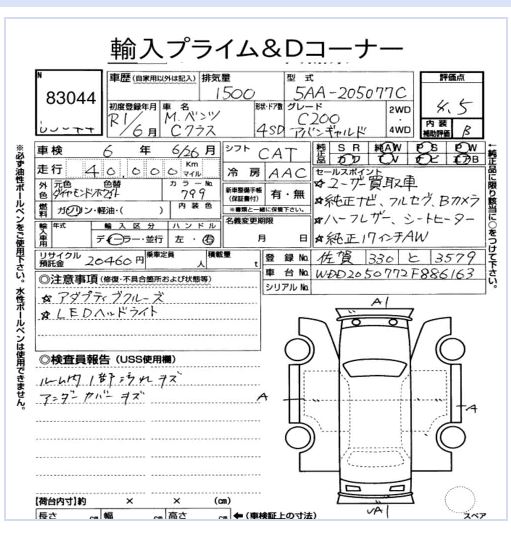 輸入プライム&Dコーナー
N
83044
車歴 (自家用以外は記入)
排気量
1500
型式
5AA-205077C
評価点
4.5
初度登録年月
R1/6月
車名
M.ベンツ
Cクラス
形状・ドア数
4SD
グレード
C200
アバンギャルド
2WD
4WD
内装
補助評価
B
車検 6年 6/26月
シフト CAT
純正品 SR 純AW PS PW
走行 40,000 Km マイル
冷房 AAC
外色 元色 色替
ダイヤモンドホワイト
カラーNo.
799
新車整備手帳
(保証書付)
有・無
※書類と一緒に保管下さい。
燃料 ガソリン・軽油・( )
内装色
名義変更期限
月 日
輸入車用 年式 輸入区分 ハンドル
ディーラー・並行 左・右
リサイクル預託金 20460円
乗車定員 人
積載量 t
セールスポイント
☆ユーザー買取車
☆純正ナビ、フルセグ、Bカメラ
☆ハーフレザー、シートヒーター
☆純正17インチAW
登録No. 佐賀 330 と 3579
車台No. WDD2050772F886163
シリアルNo.
◎注意事項 (修復・不具合箇所および状態等)
☆アダプティブクルーズ
☆LEDヘッドライト
◎検査員報告 (USS使用欄)
ルーム内1部汚れキズ
アンダーカバーキズ
A1
A
A
A1
スペア
【荷台内寸】約 × × (cm)
長さ cm 幅 cm 高さ cm ←(車検証上の寸法)
※必ず油性ボールペンをご使用下さい。水性ボールペンは使用できません。
↑純正品に限り該当に○をつけて下さい。